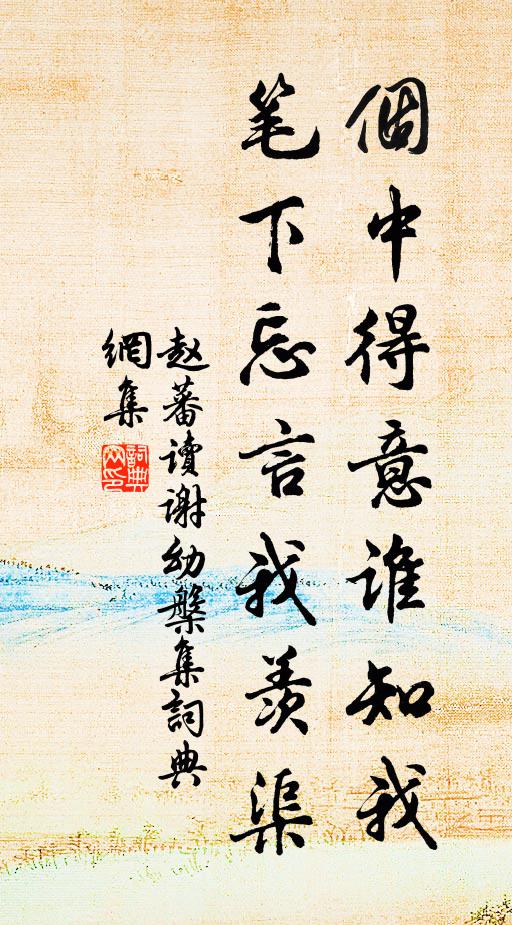 個中得意誰知我
笔下忘言我羨渠
赵蕃讀謝幼槃集詞典
網集
詞典
网印